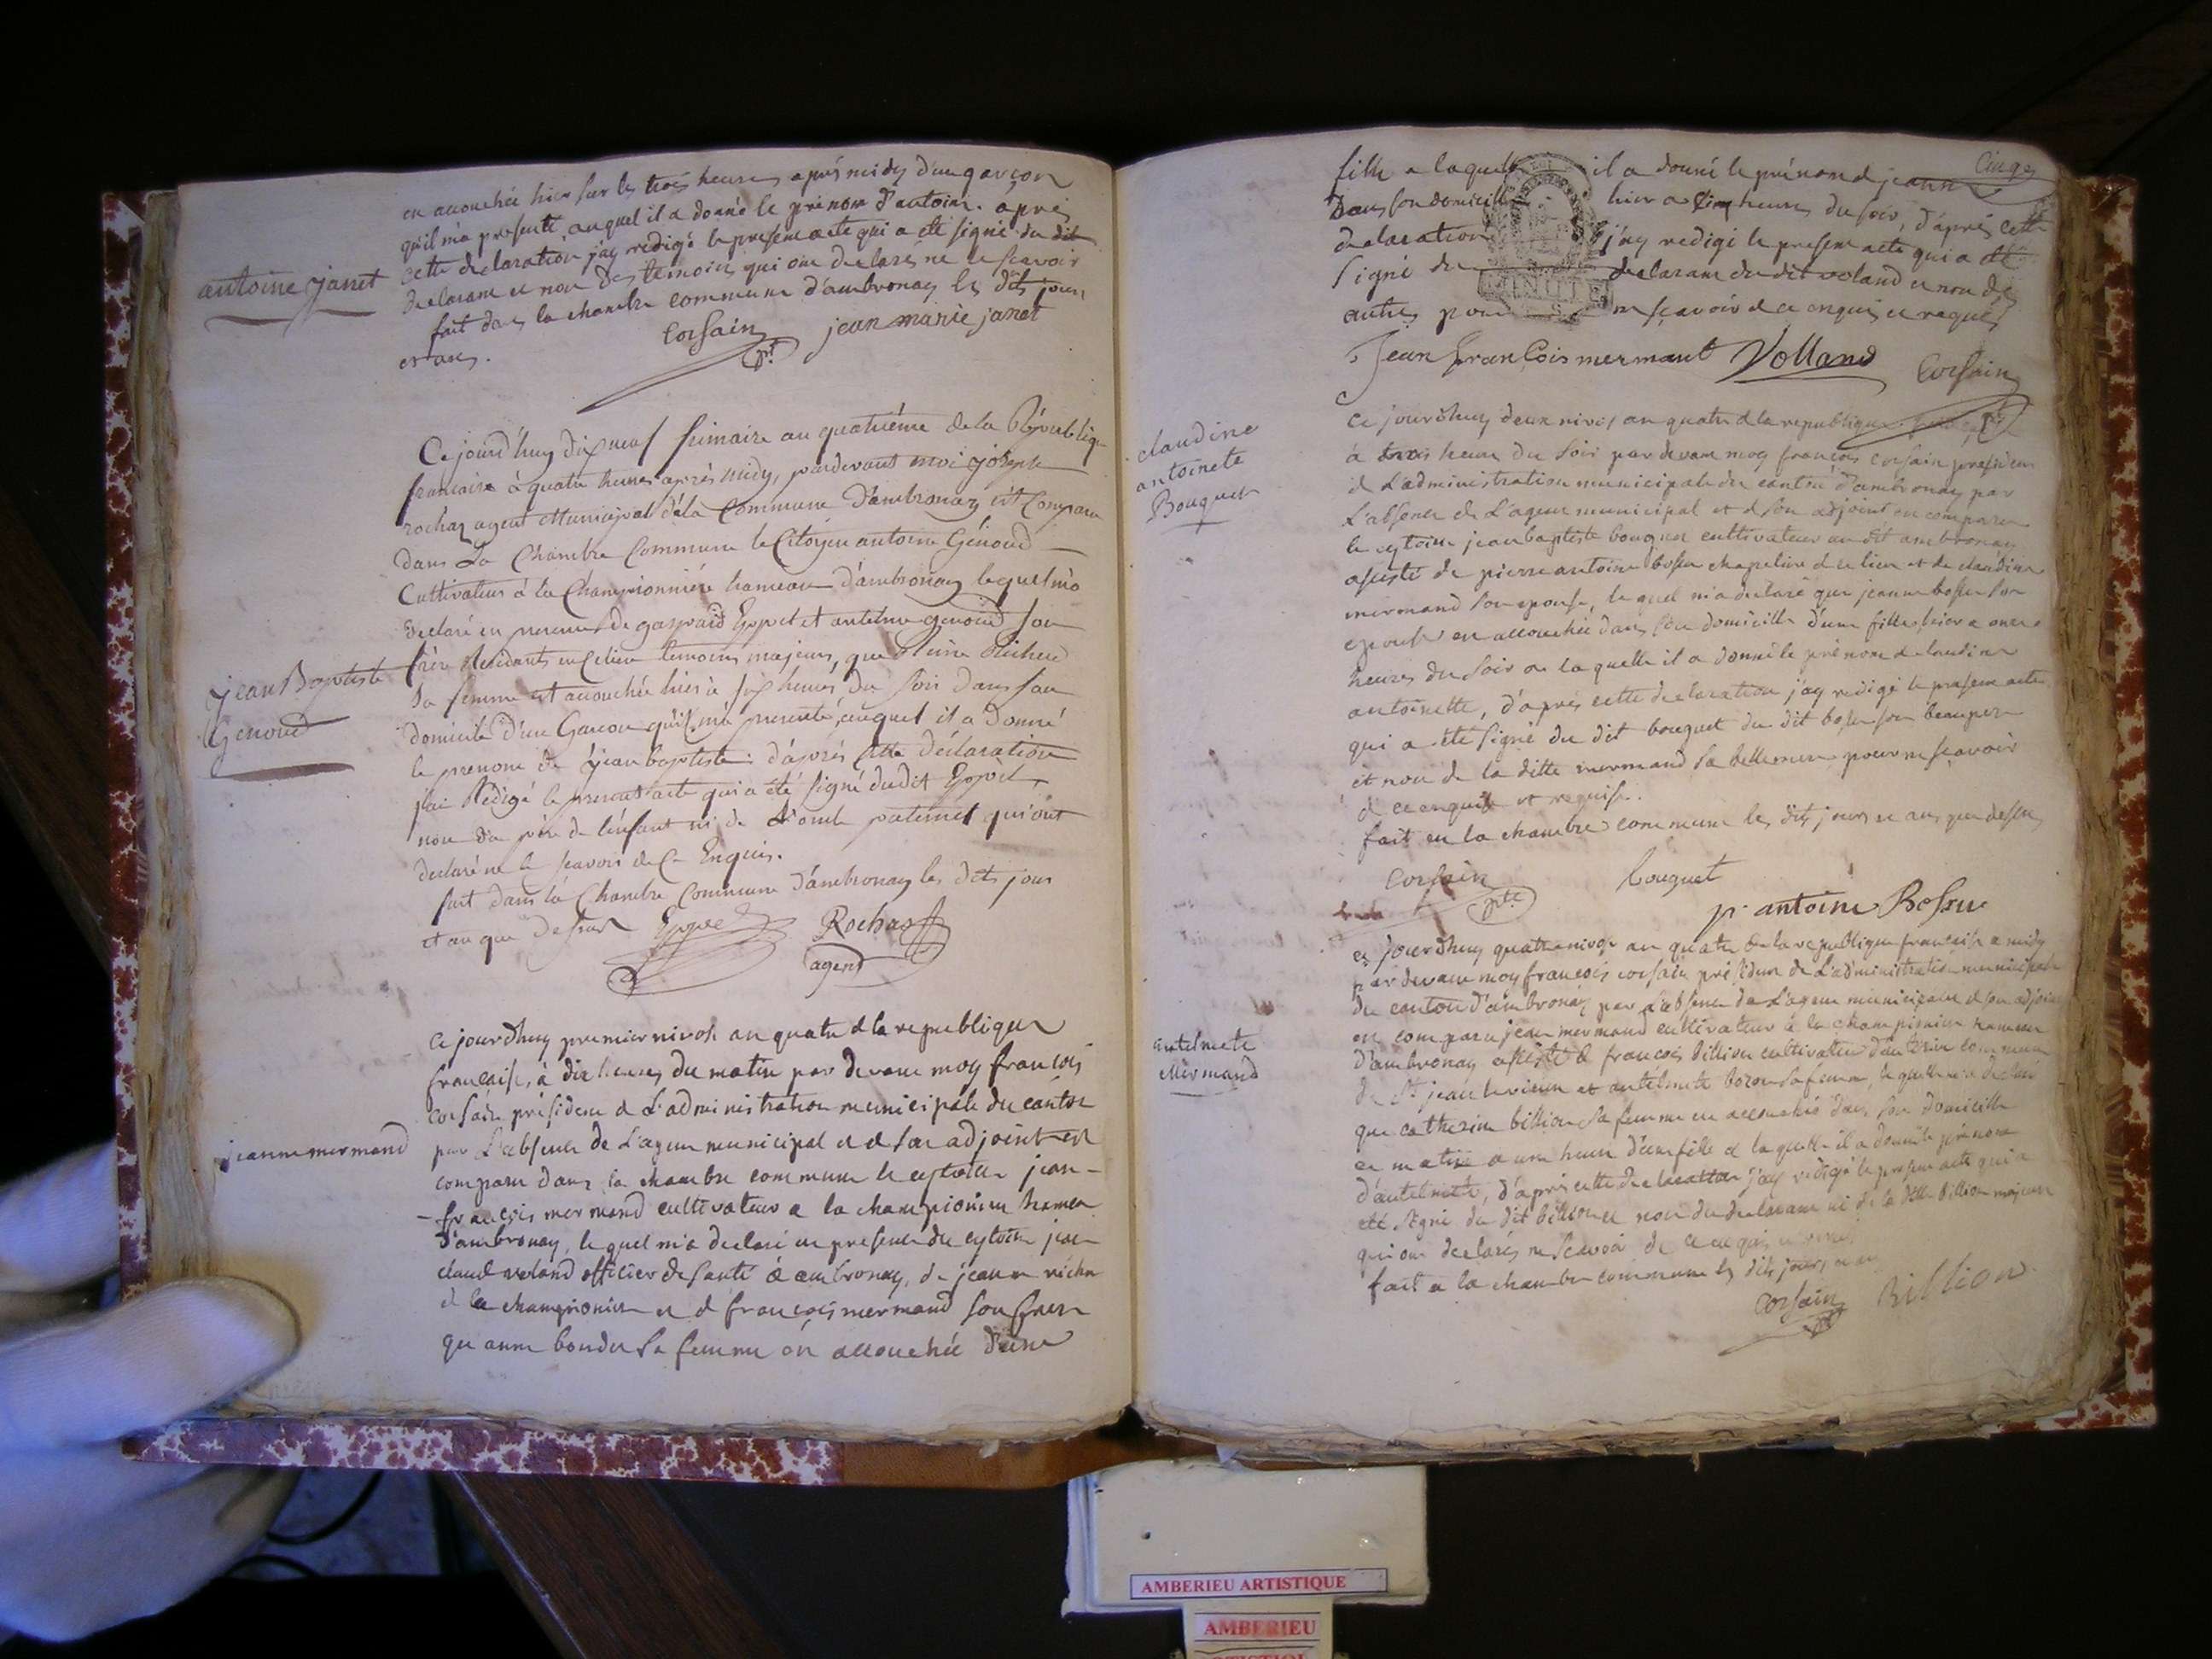 en accouchée hier sur les trois heures après midy d'un garçon
qu'il m'a presenté, auquel il a donné le prénom d'antoine. après
cette declaration j'ay redigé le present acte qui a été signé du dit
antoine janet
declarant et non des temoins qui ont declarés ne le scavoir
fait dans la chambre commune d'ambronay les dits jour
et an.
Corsain prt jean marie janet
Ce jourd'huy dix neuf frimaire an quatriéme de la Républiq
francaise à quatre heures après midy, pardevant moi joseph
rochas agent Municipal de la Commune d'ambronay est Comparu
dans La Chambre Commune le Citoyen antoine Génoud
Cultivateur à la Championnière hameau d'ambronay lequel m'a
declaré en presence de gaspard Goyet et antelme genoud son
jean Baptiste
Genoud
frère Residants en ce lieu temoins majeurs, que
sa femme est accouchée hier à six heures du soir dans son
domicile d'un Garcon qu'il m'a presenté, auquel il a Donné
le prenom de jean baptiste. d'après cette déclaration
j'ai Rédigé le present acte qui a été signé dudit
non du père de l'enfant ni de l'oncle paternel qui ont
declaré ne le scavoir de ce Enquis.
fait dans la Chambre Commune d'ambronay les dits jour
et an que dessus Rochas
agent
ce jourdhuy premier nivose an quatre d la republique
francaise, à dix heures du matin par devant moy francois
corsain président d L'administration municipale du canton
jeanne mermand
par L'absence de L'agent municipal et d son adjoint est
comparu dans la chambre commune le cytoien jean-
-francois mermand cultivateur a la championiere hameau
d'ambronay, lequel m'a declaré en presence du cytoien jean
claude voland officier de santé a ambronay, de jeanne
d la championiere et d francois mermand son frere
qu anne sa femme en accouchée d'une
Cinq
fille a laquelle il a donné le prénom d jeanne
Dans son domicille hier a cinq heures du soir, d'après cette
declaration j'ay redigé le present acte qui a été
signé du declarant du dit voland et non des
autres pour ne scavoir d ce enquis et requis
MINUTE
Jean francois mermant Volland Corsain
prt
claudine
antoinete
Bouquet
ce jourdhuy deux nivos an quatre d la republique
à trois heure du soir par devant moy francois corsain president
d L'administration municipale du canton d'ambronay par
L'absence de L'agent municipal et d son adjoint en comparu
le cytoien jean baptiste bouquet cultivateur au dit ambronay
assisté de pierre antoine chapelier d ce lieu et de claudine
mermand son epouse, lequel m'a declaré que jeanne son
epouse en accouchée dans son domicille d'une fille hier a onze
heures du soir a laquelle il a donné le prénom d claudine
antoinette, d'après cette declaration j'ay redigé le present acte
qui a été signé du dit bouquet du dit son beaupere
et non de la ditte mermand sa bellemere pour ne scavoir
d ce enquise et requise.
fait en la chambre commune les dits jours et ans que dessus
corsain prt bouquet
p. antoine Bossu
ce jourdhuy quatre nivose an quatre de la republique francaise a midy
par devant moy francois corsain président de L'administration municipale
du canton d'ambronay par L'absence de L'agent municipal et d son adjoint
antelmete
Mermand
en comparu jean mermand cultivateur à la championiere hameau
d'ambronay assisté d francois billion cultivateur commune
de St jean le vieux et antelmete sa femme, lequel m'a declaré
que catherine billion sa femme en accouchée dans son domicille
ce matin a une heure d'une fille a laquelle il a donné le prénom
d'antelmete, d'après cette declaration j'ay redigé le present acte qui a
eté signé du dit billion et non du declarant ni de la ditte billion majeure
qui ont declarés ne scavoir de ce enquis
fait a la chambre commune les dits jours et an
Corsain Billion
AMBERIEU ARTISTIQUE
AMBERIEU
ARTISTIQUE